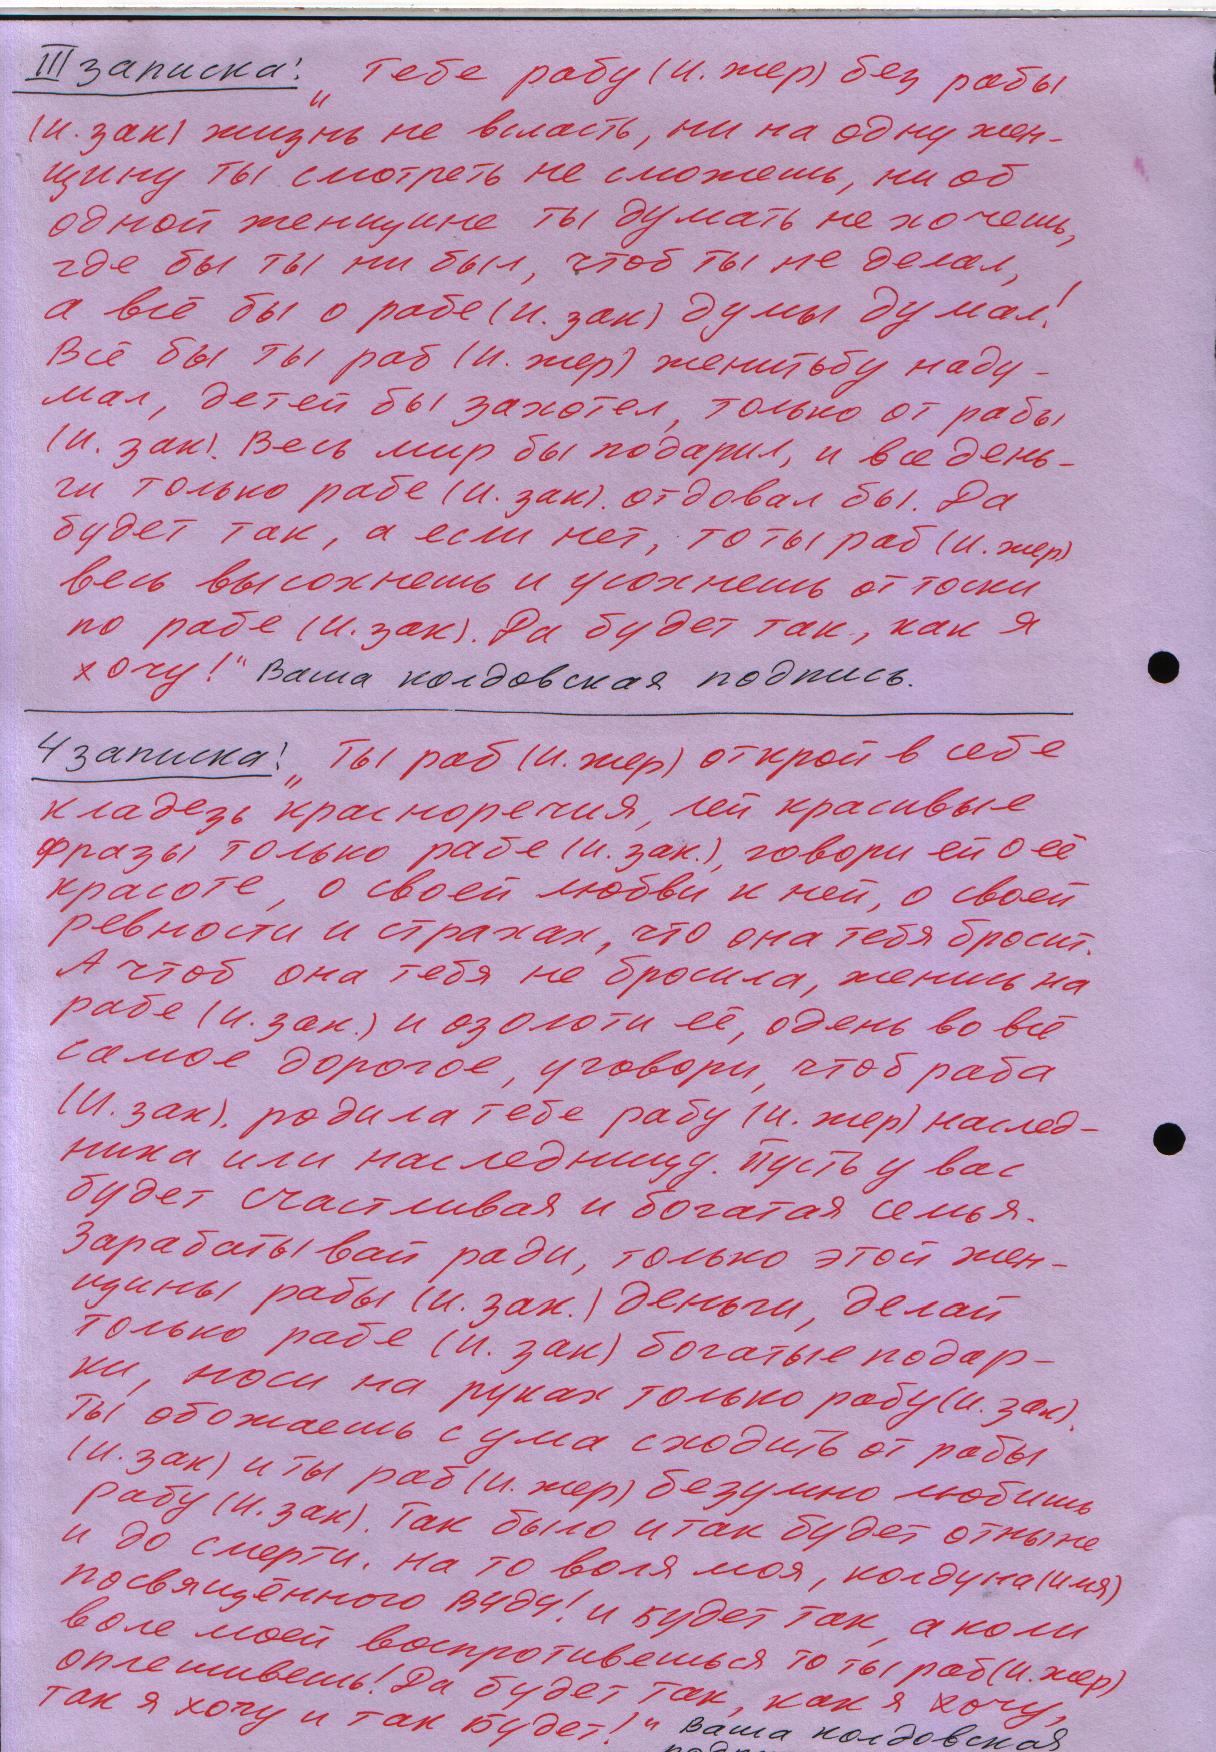 III записка! „Тебе рабу (и. жер) без рабы
(и. зак) жизнь не всласть, ни на одну жен-
щину ты смотреть не сможешь, ни об
одной женщине ты думать не хочешь,
где бы ты ни был, чтоб ты не делал,
а всё бы о рабе (и. зак) думы думал!
Всё бы ты раб (и. жер) женитьбу наду-
мал, детей бы захотел, только от рабы
(и. зак). Весь мир бы подарил, и все день-
ги только рабе (и. зак). отдовал бы. Да
будет так, а если нет, то ты раб (и. жер)
весь высохнешь и усохнешь от тоски
по рабе (и. зак). Да будет так, как я
хочу!" Ваша колдовская подпись.
4 записка! „Ты раб (и. жер) открой в себе
кладезь красноречия, лей красивые
фразы только рабе (и. зак.), говори ей о её
красоте, о своей любви к ней, о своей
ревности и страхах, что она тебя бросит.
А чтоб она тебя не бросила, женись на
рабе (и. зак.) и озолоти её, одень во всё
самое дорогое, уговори, чтоб раба
(и. зак). родила тебе рабу (и. жер) наслед-
ника или наследницу. Пусть у вас
будет счастливая и богатая семья.
Зарабатывай ради, только этой жен-
щины рабы (и. зак.) деньги, делай
только рабе (и. зак) богатые подар-
ки, носи на руках только рабу (и. зак).
Ты обожаешь с ума сходить от рабы
(и. зак) и ты раб (и. жер) безумно любишь
рабу (и. зак). Так было и так будет отныне
и до смерти. На то воля моя, колдуна (имя)
посвящённого ВУДУ! и будет так, а коли
воле моей воспротивешься то ты раб (и. жер)
оплешивешь! Да будет так, как я хочу,
так я хочу и так будет!" Ваша колдовская